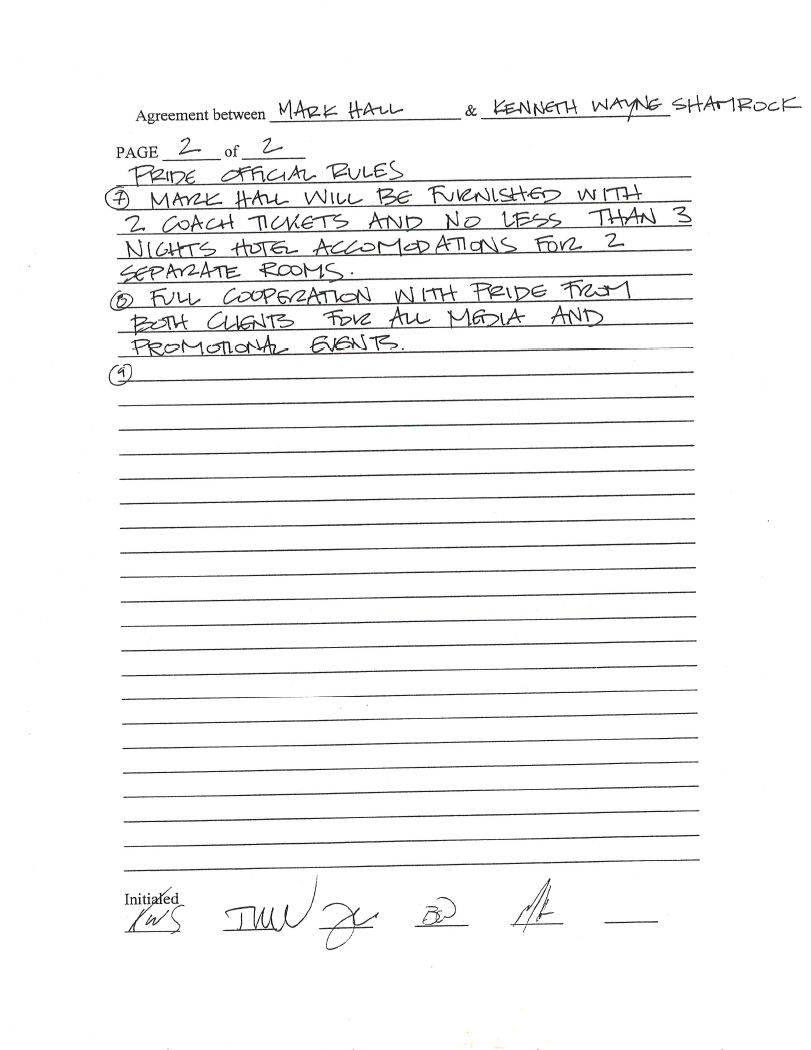 Agreement between MARK HALL & KENNETH WAYNE SHAMROCK
PAGE 2 of 2
PRIDE OFFICIAL RULES
(7) MARK HALL WILL BE FURNISHED WITH
2 COACH TICKETS AND NO LESS THAN 3
NIGHTS HOTEL ACCOMODATIONS FOR 2
SEPARATE ROOMS.
(8) FULL COOPERATION WITH PRIDE FROM
BOTH CLIENTS FOR ALL MEDIA AND
PROMOTIONAL EVENTS.
(9)
Initialed
KWS